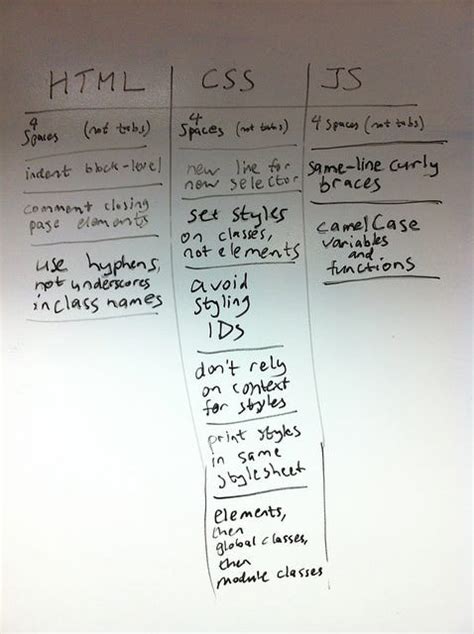 HTML
4 spaces (not tabs)
indent block-level
comment closing
page elements
use hyphens,
not underscores
in class names
CSS
4 spaces (not tabs)
new line for
new selector
set styles
on classes,
not elements
avoid
styling
IDs
don't rely
on context
for styles
print styles
in same
stylesheet
elements,
then
global classes,
then
module classes
JS
4 spaces (not tabs)
same-line curly
braces
camelCase
variables
and
functions